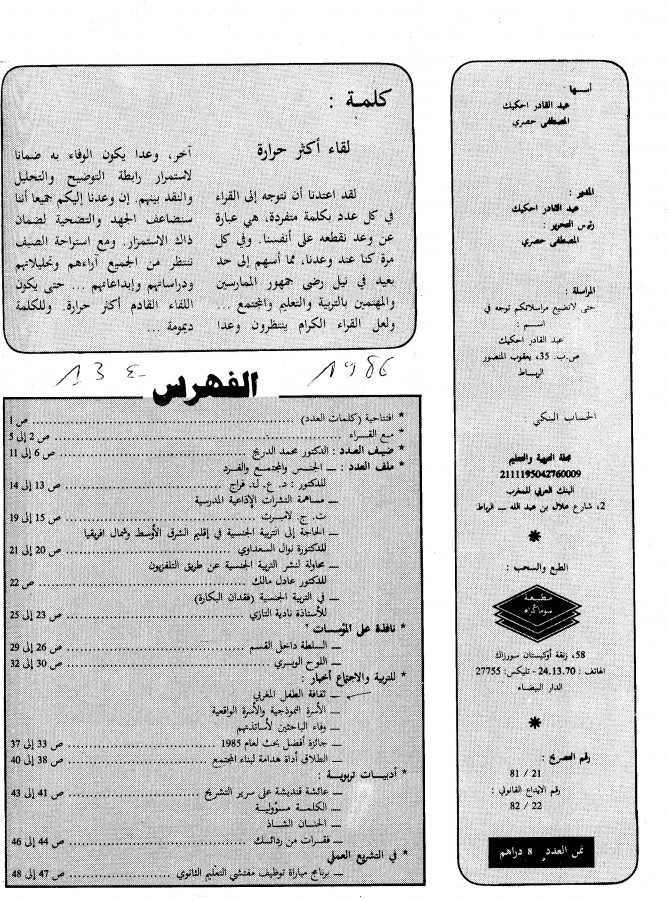 كلمة :
لقاء أكثر حرارة
لقد اعتدنا أن نتوجه إلى القراء
في كل عدد بكلمة متفردة، هي عبارة
عن وعد نقطعه على أنفسنا. وفي كل
مرة كنا عند وعدنا، مما أسهم إلى حد
بعيد في نيل رضى جمهور الممارسين
والمهتمين بالتربية والتعليم والمجتمع ...
ولعل القراء الكرام ينتظرون وعدا
آخر، وعدا يكون الوفاء به ضمانا
لاستمرار رابطة التوضيح والتحليل
والنقد بينهم. إن وعدنا إليكم جميعا أننا
سنضاعف الجهد والتضحية لضمان
ذاك الاستمرار. ومع استراحة الصيف
ننتظر من الجميع آراءهم وتحليلاتهم
ودراساتهم وإبداعاتهم ... حتى يكون
اللقاء القادم أكثر حرارة. وللكلمة
ديمومة ...
1986
الفهرس
* افتتاحية (كلمات العدد) ... ص 1
* مع القراء ... ص 2 إلى 5
* ضيف العدد : الدكتور محمد الدريج ... ص 6 إلى 11
* ملف العدد : ـ الجنس والمجتمع والفرد
للدكتور : د. ع. ل. فراج ... ص 13 إلى 14
ـ مساهمة النشرات الإذاعية المدرسية
ت. ج. لامبرت ... ص 15 إلى 19
ـ الحاجة إلى التربية الجنسية في إقليم الشرق الأوسط وشمال افريقيا
للدكتورة نوال السعداوي ... ص 20 إلى 21
ـ محاولة لنشر التربية الجنسية عن طريق التلفزيون
للدكتور عادل مالك ... ص 22
ـ في التربية الجنسية (فقدان البكارة)
للأستاذة نادية التازي ... ص 23 إلى 25
* نافذة على المؤسسات
ـ السلطة داخل القسم ... ص 26 إلى 29
ـ اللوح الوبري ... ص 30 إلى 32
* للتربية والاجتماع أخبار :
ـ ثقافة الطفل المغربي
ـ الأسرة النموذجية والأسرة الواقعية
ـ وفاء الباحثين لأساتذتهم
ـ جائزة أفضل بحث لعام 1985 ... ص 33 إلى 37
ـ الطلاق أداة هدامة لبناء المجتمع ... ص 38 إلى 40
* أدبيات تربوية :
ـ عائشة قنديشة على سرير التشريح ... ص 41 إلى 43
ـ الكلمة مسؤولية
ـ الحنان الشاذ
ـ فقرات من رداءتك ... ص 44 إلى 46
* في التشريع العملي
ـ برنامج مباراة توظيف مفتشي التعليم الثانوي ... ص 47 إلى 48
أسسها :
عبد القادر احكيك
المصطفى حصري
المدير :
عبد القادر احكيك
رئيس التحرير :
المصطفى حصري
المراسلة :
حتى لاتضيع مراسلاتكم توجه في
اسم :
عبد القادر احكيك
ص.ب. 35، يعقوب المنصور
الرباط
الحساب البنكي
مجلة التربية والتعليم
2111195042760009
البنك العربي للمغرب
2، شارع علال بن عبد الله ــ الرباط
الطبع والسحب :
مطبعة
سوماكرام
58، زنقة أوكيستان سورزاك
الهاتف : 24.13.70 - تليكس: 27755
الدار البيضاء
رقم التصريح :
21 / 81
رقم الايداع القانوني :
22 / 82
ثمن العدد 8 دراهم